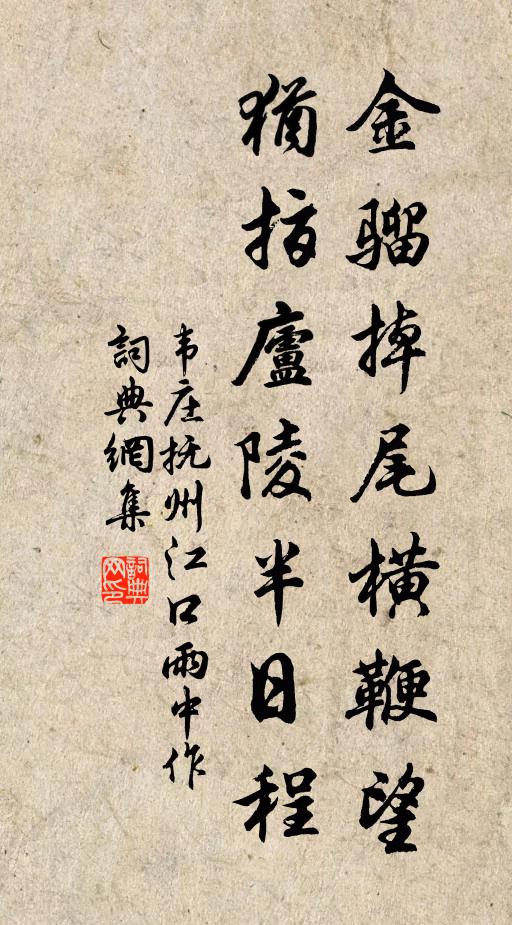 金騮掉尾橫鞭望
猶指廬陵半日程
韦庄抚州江口雨中作
詞典網集
詞典网印